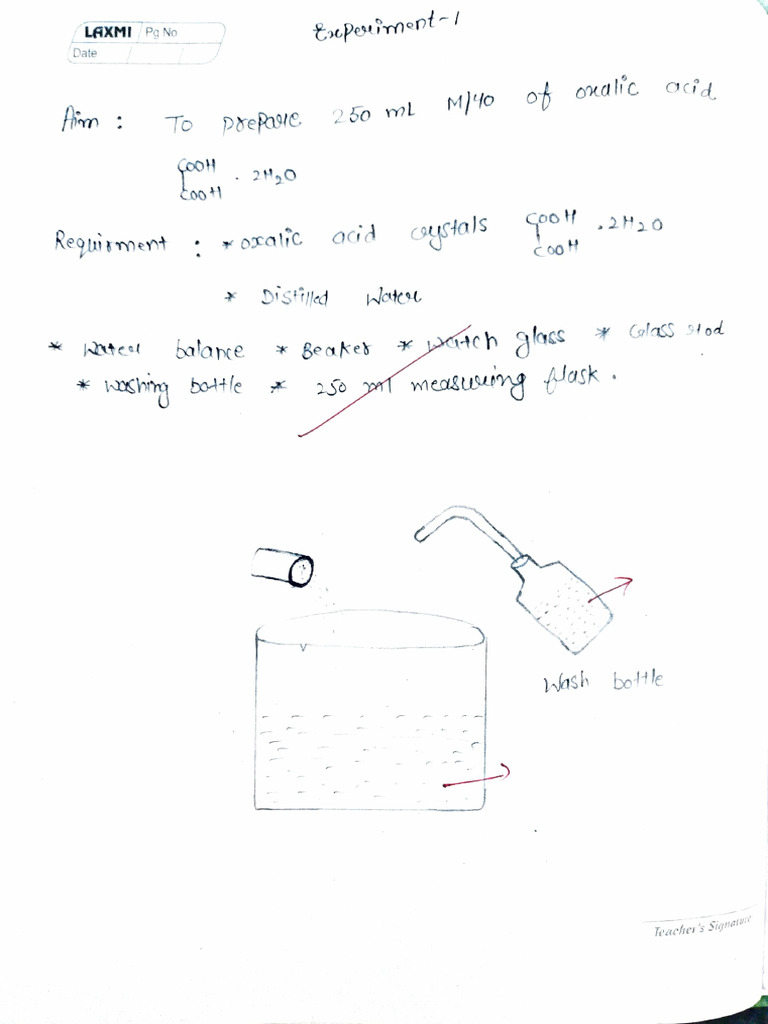 Experiment-1
LAXMI Pg No
Date
Aim : To prepare 250 mL M/40 of oxalic acid
COOH
COOH . 2H2O
Requirment : * oxalic acid crystals COOH
COOH . 2H2O
* Distilled Water
* Water balance * Beaker * Watch glass * Glass rod
* Washing bottle * 250 ml measuring flask.
Wash bottle
Teacher's Signature